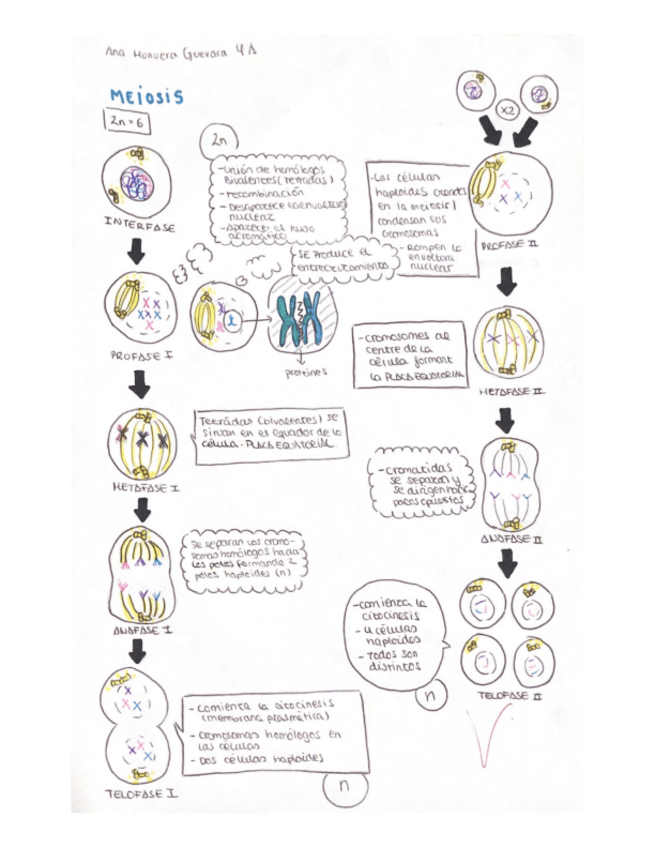 Ana Monuera Guevara 4ºA
MEIOSIS
2n=6
INTERFASE
2n
-Unión de homólogos
Bivalentes (Tetradas)
-recombinación
- Desaparece la envoltura
nuclear
-Aparece el huso
acromático
PROFASE I
SE PRODUCE EL
ENTRECRUZAMIENTO
proteínes
METAFASE I
Tetrádas (bivalentes) se
situan en el equador de la
célula. PLACA EQUATORIAL
ANAFASE I
Se separan los cromo-
somas homólogos hacia
los polos formando 2
polos haploides (n)
TELOFASE I
- comienza la citocinesis
(membrana plasmática)
- Cromosomas homólogos en
las células
- Dos células haploides
n
x2
-Las células
haploides creades
en la meiosis I
condensan los
cromosomas
- Rompen la
envoltura
nuclear
PROFASE II
-cromosomes al
centre de la
célula formant
la PLACA EQUATORIAL
METAFASE II
-cromatidas
se separan y
se dirigen hacia
polos opuestos
ANAFASE II
-comienza la
citocinesis
- 4 células
haploides
- Todos son
distintos
n
TELOFASE II